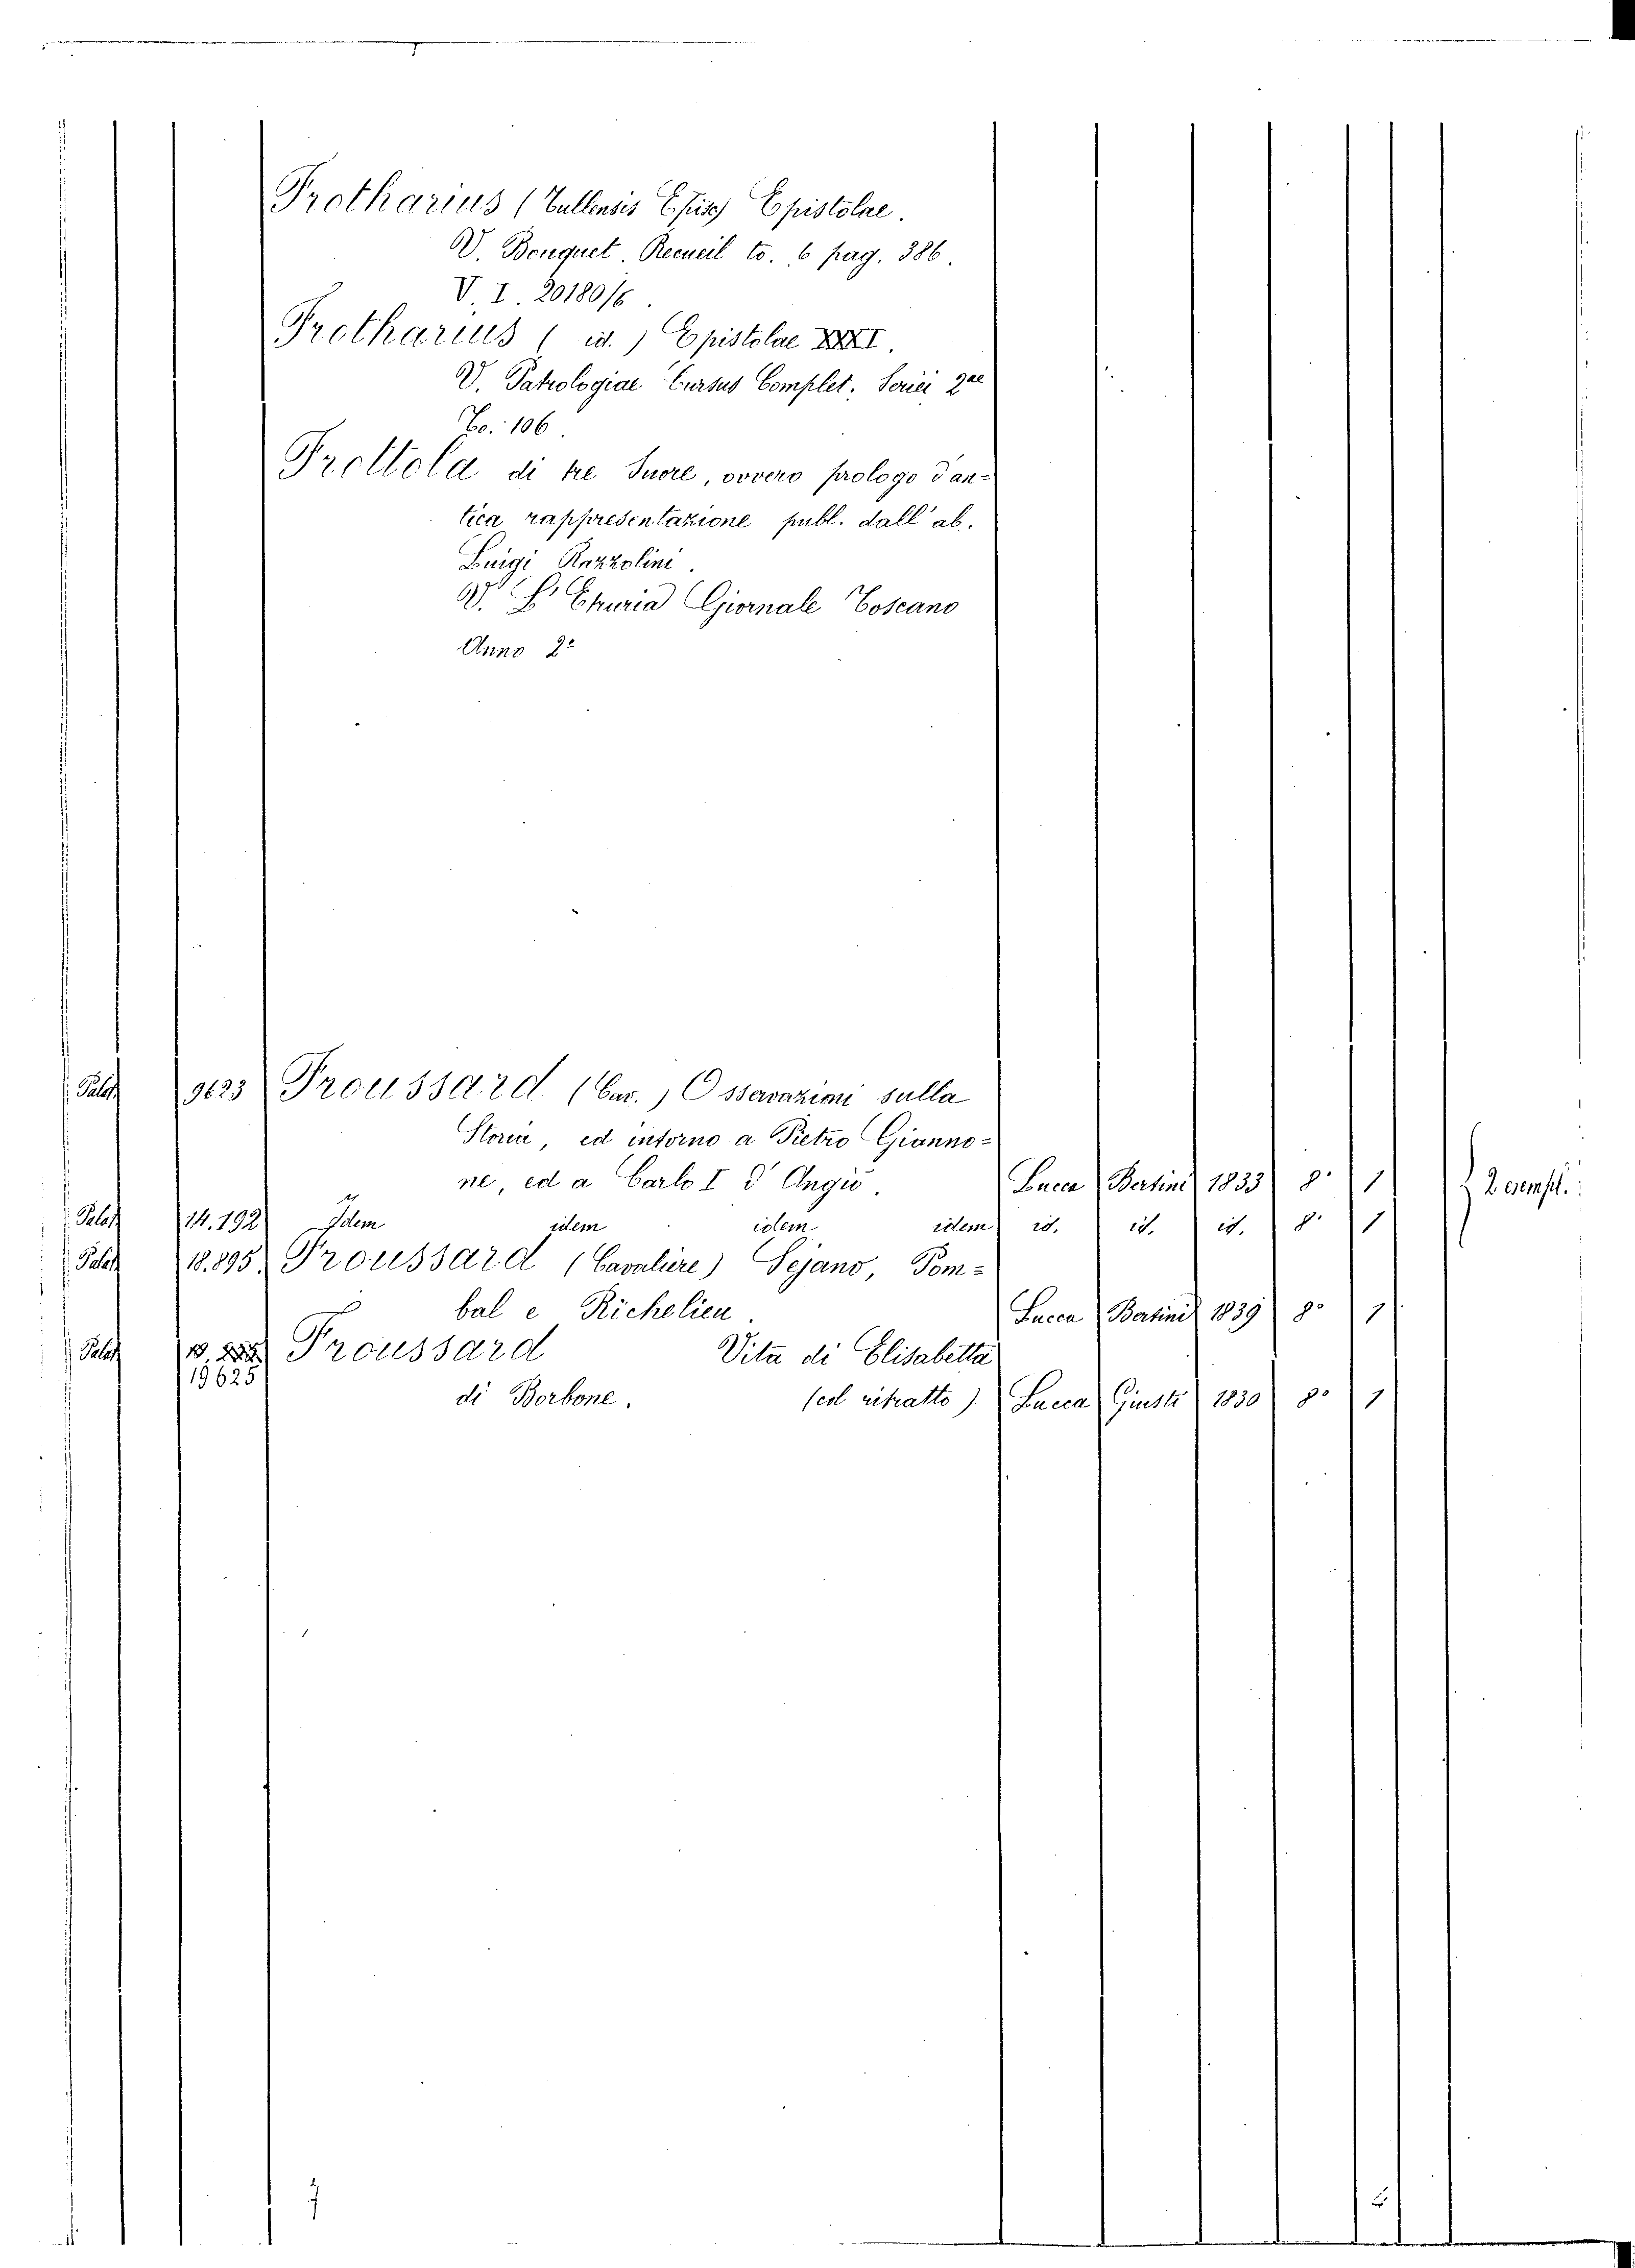 Frotharius (Tullensis Episc) Epistolae.
V. Bouquet. Recueil to. 6 pag. 386.
V. I. 20180/6.
Frotharius ( id. ) Epistolae XXXI.
V. Patrologiae Cursus Complet. Seriei 2ae
To. 106.
Frottola di tre Suore, ovvero prologo d'an=
tica rappresentazione publ. dall' ab.
Luigi Razzolini.
V. L' Etruria Giornale Toscano
Anno 2°
Palat 9623 Froussard (Cav.) Osservazioni sulla
Storia, ed intorno a Pietro Gianno=
ne, ed a Carlo I d' Angiò. Lucca Bertini 1833 8° 1 2 esempl.
Palat 14.192 Idem idem idem idem id. id. id. 8° 1
Palat 18.895 Froussard (Cavaliere) Sejano, Pom=
bal e Richelieu. Lucca Bertini 1839 8° 1
Palat 19625 Froussard Vita di Elisabetta
di Borbone. (col ritratto) Lucca Giusti 1830 8° 1
7
5